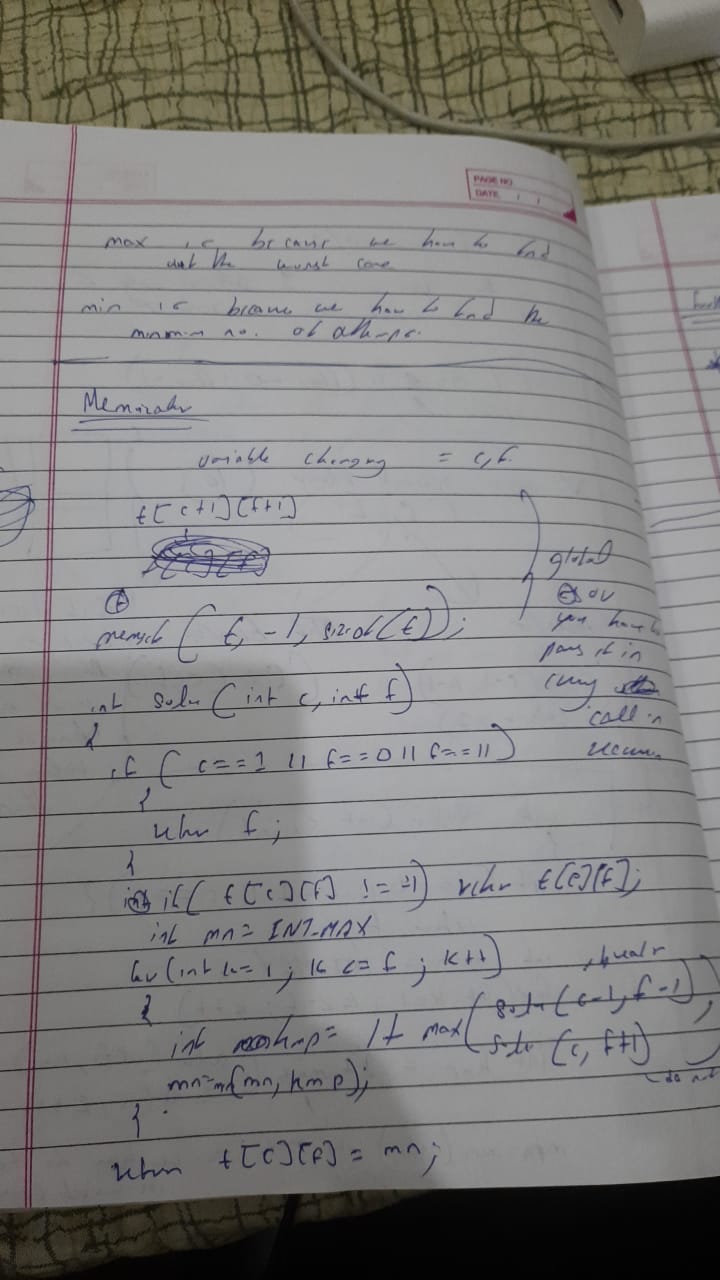 PAGE NO.
DATE / /
max is because we have to find
out the worst case
min is because we have to find the
minmin no. of attemps.
Memization
variable changing = c, f.
t[c+1][f+1]
memset(t, -1, sizeof(t));
global
or
you have to
pass it in
every
call in
int solve (int c, int f)
{
if (c==1 || f==0 || f==1)
{
return f;
}
if( t[c][f] != -1) return t[c][f];
int mn = INT_MAX
for (int k=1; k<=f; k++)
{
int tmp = 1+ max(solve(c-1, f-1),
solve (c, f+1)
mn=m(mn, tmp);
}
return t[c][f] = mn;